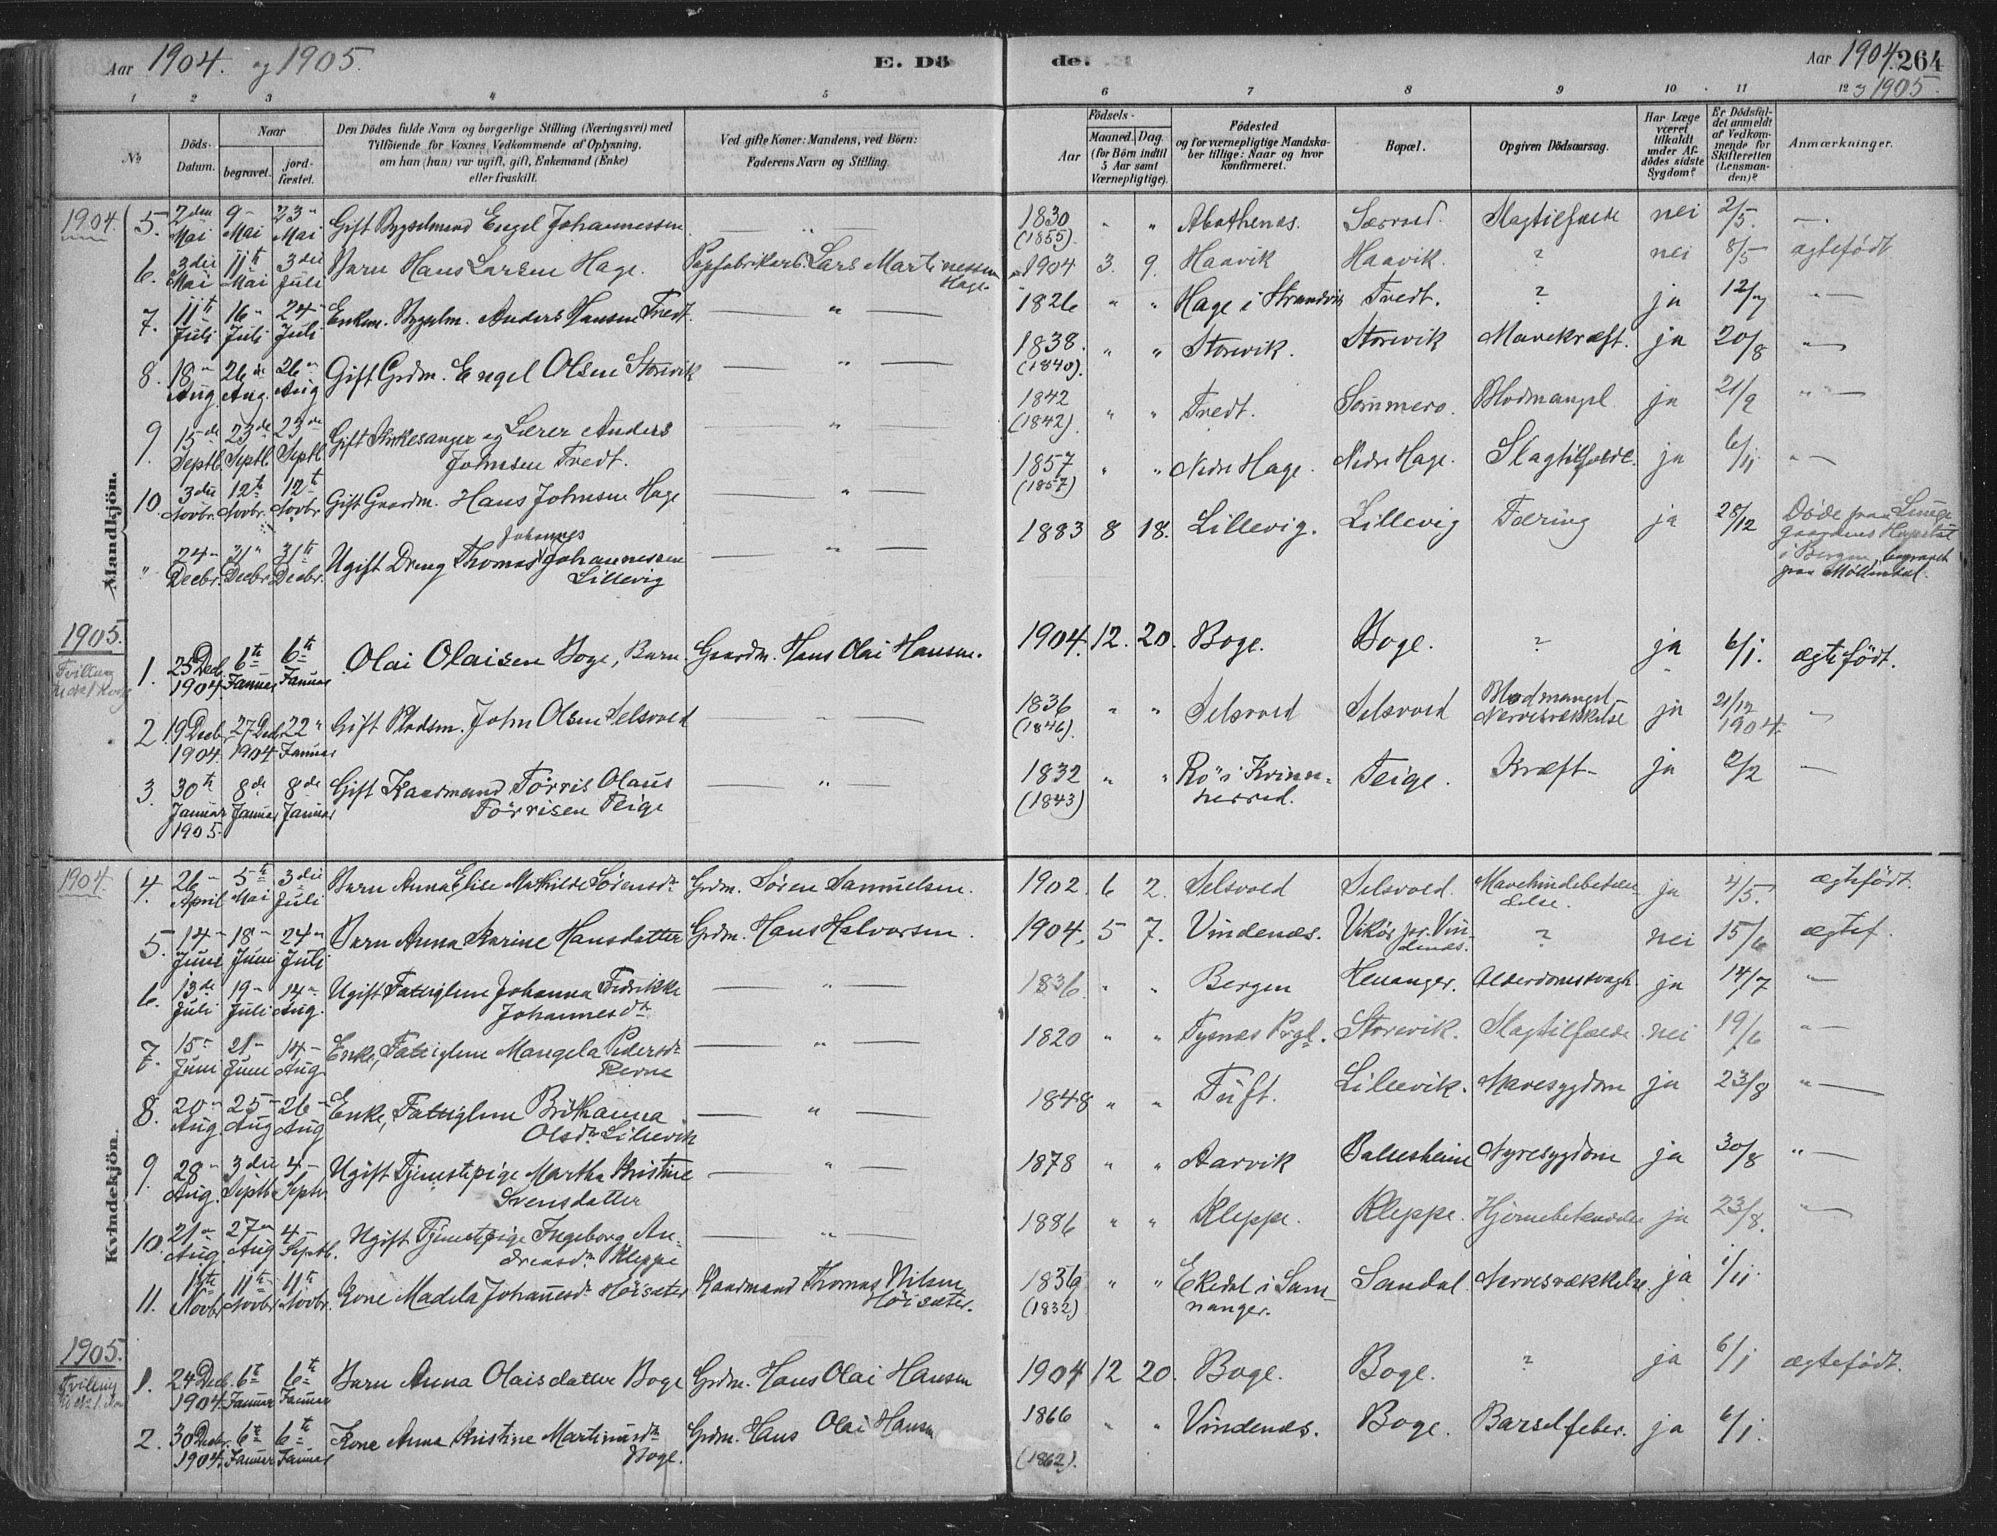 Aar 1904. og 1905. E. Dö de. Aar 1904. 264
og 1905.
1 2 3 4 5 6 7 8 9 10 11 12
No Döds-Datum. Naar begravet. jord-fæstet. Den Dödes fulde Navn og borgerlige Stilling (Næringsvei) med Tilföiende for Voxnes Vedkommende af Oplysning, om han (hun) var ugift, gift, Enkemand (Enke) eller fraskilt. Ved gifte Koner: Mandens, ved Börn: Faderens Navn og Stilling. Födsels- Aar Maaned. Dag. (for Börn indtil 5 Aar samt Værnepligtige). Födested og for værnepligtige Mandska-ber tillige: Naar og hvor konfirmeret. Bopæl. Opgiven Dödsaarsag. Har Læge været tilkaldt under Af-dödes sidste Sygdom? Er Dödsfal-det anmeldt af Vedkom-mende for Skifteretten (Lensman-den)? Anmærkninger.
Mandkjön.
1904.
5. 2den Mai 9 Mai 23 Mai Gift Bygselmand Engel Johannessen 1830 (1855) " " Abothenæs. Særvol. Slagtilfælde nei 2/5
6. 3die Mai 11te Mai 3die Juli Barn Hans Larsen Hage. Papfabrikarb. Lars Martinessen Hage. 1904 3. 9. Haavik Haavik. ? nei 8/5 ægtefödt
7. 11te Juli 16 Juli 24 Juli Enkem. Bygselm. Anders Hansen Tvedt. 1826 " " Hage i Strandvig Tvedt. ? ja 12/7
8. 18 Aug. 26de Aug. 26 Aug Gift Grdm. Engel Olsen Storevik 1838. (1840). " " Storevik. Storevik Mavekræft. ja 20/8
9. 15de Septb. 23de Septb. 23de Septb. Gift Kirkesanger og Lærer Anders Johnsen Tvedt. 1842 (1842) " " Tvedt. Sommero. Blodmangel ja 21/9
10. 3die Novbr. 12te Novbr. 12te Novbr. Gift Gaardm. Hans Johnsen Hage 1857 (1857) " " Nedre Hage. Nedre Hage. Slagtilfælde. ja 6/11
" 24 Decbr. 31 Decbr. 31te Decbr. Ugift Dreng Thomas Johannes Johannessen Lillevig 1883 8 18. Lillevig. Lillevig Tæring ja 28/12 Døde paa Lunge gaardens Hospital i Bergen, begravet paa Möllendal.
1905.
Tvilling
1. 25 Decb. 1904. 6te Januar 6te Januar Olai Olaisen Boge, Barn Gaardm. Hans Olai Hansen. 1904. 12. 20. Boge. Boge. ? ja 6/1. ægtefödt.
2. 19 Decb. 1904. 27 Decbr. 1904 22 Januar Gift Pladsm. John Olsen Selsvold 1836 (1846). " " Selsvold Selsvold Blodmangel-Nervesvækkelse ja 21/12 1904.
3. 30te Januar 1905. 8de Januar 8de Januar Gift Kaarmand Törris Olaus Törrisen Teige 1832 (1843) " " Rö i Kvinn-herred. Teige. Kræft ja 2/2
Kvindekjön.
1904.
4. 26 April 5te Mai 3die Juli Barn Anna Elise Mathilde Sörensdtr Grdm. Sören Samuelsen. 1902. 6 2. Selsvold Selsvold. Mavehindebetændelse. ja 4/5. ægtefödt.
5. 14 Juni 18 Juni 24 Juli Barn Anna Karine Hansdatter Grdm. Hans Halvorsen. 1904. 5 7. Vindenæs. Vikör pr. Vindenæs. ? nei 15/6 ægtef.
6. 13de Juli 19 Juli 14 Aug. Ugift Fattiglem Johanna Fredrikke Johannesdtr 1836. " " Bergen Henanger. Alderdomssvagh. ja 14/7
7. 15 Juni 21 Juni 14 Aug. Enke, Fattiglem Mangela Pedersdtr Rerne 1820 " " Tysnæs Prgl. Storevik. Slagtilfælde nei 19/6
8. 20 Aug. 25 Aug 26 Aug Enke, Fattiglem Brithanna Olsdtr Lillevik 1848 " " Tuft. Lillevik. Mavesygdom ja 23/8
9. 28 Aug. 3die Septb. 4 Septbr. Ugift Tjenestepige Martha Kristine Svensdatter 1878 " " Aarvik Ballesheim Nyresygdom ja 30/8
10. 21 Aug. 27 Aug 4 Septb. Ugift Tjenestepige Ingeborg Andreasdtr Kleppe 1886 " " Kleppe. Kleppe. Hjernebetændelse ja 23/8.
11. 1ste Novbr. 11te Novbr. 11te Novbr. Kone Madela Johannesdtr Höisæter Kaarmand Thomas Nilsen Höisæter. 1836 (1832) " " Ekedal i Samnanger. Sandal Nervesvækkelse ja 1/11.
1905.
Tvilling
1. 24 Decb. 1904. 6te Januar 6te Januar Barn Anna Olaisdatter Boge Grdm. Hans Olai Hansen 1904 12 20. Boge. Boge. ? ja 6/1 ægtefödt.
2. 30 Decbr. 1904. 6te Januar 6te Januar Kone Anna Kristine Martinusdtr Boge. Grdm. Hans Olai Hansen 1866 (1862). " " Vindenæs. Boge. Barselfeber. ja 6/1.